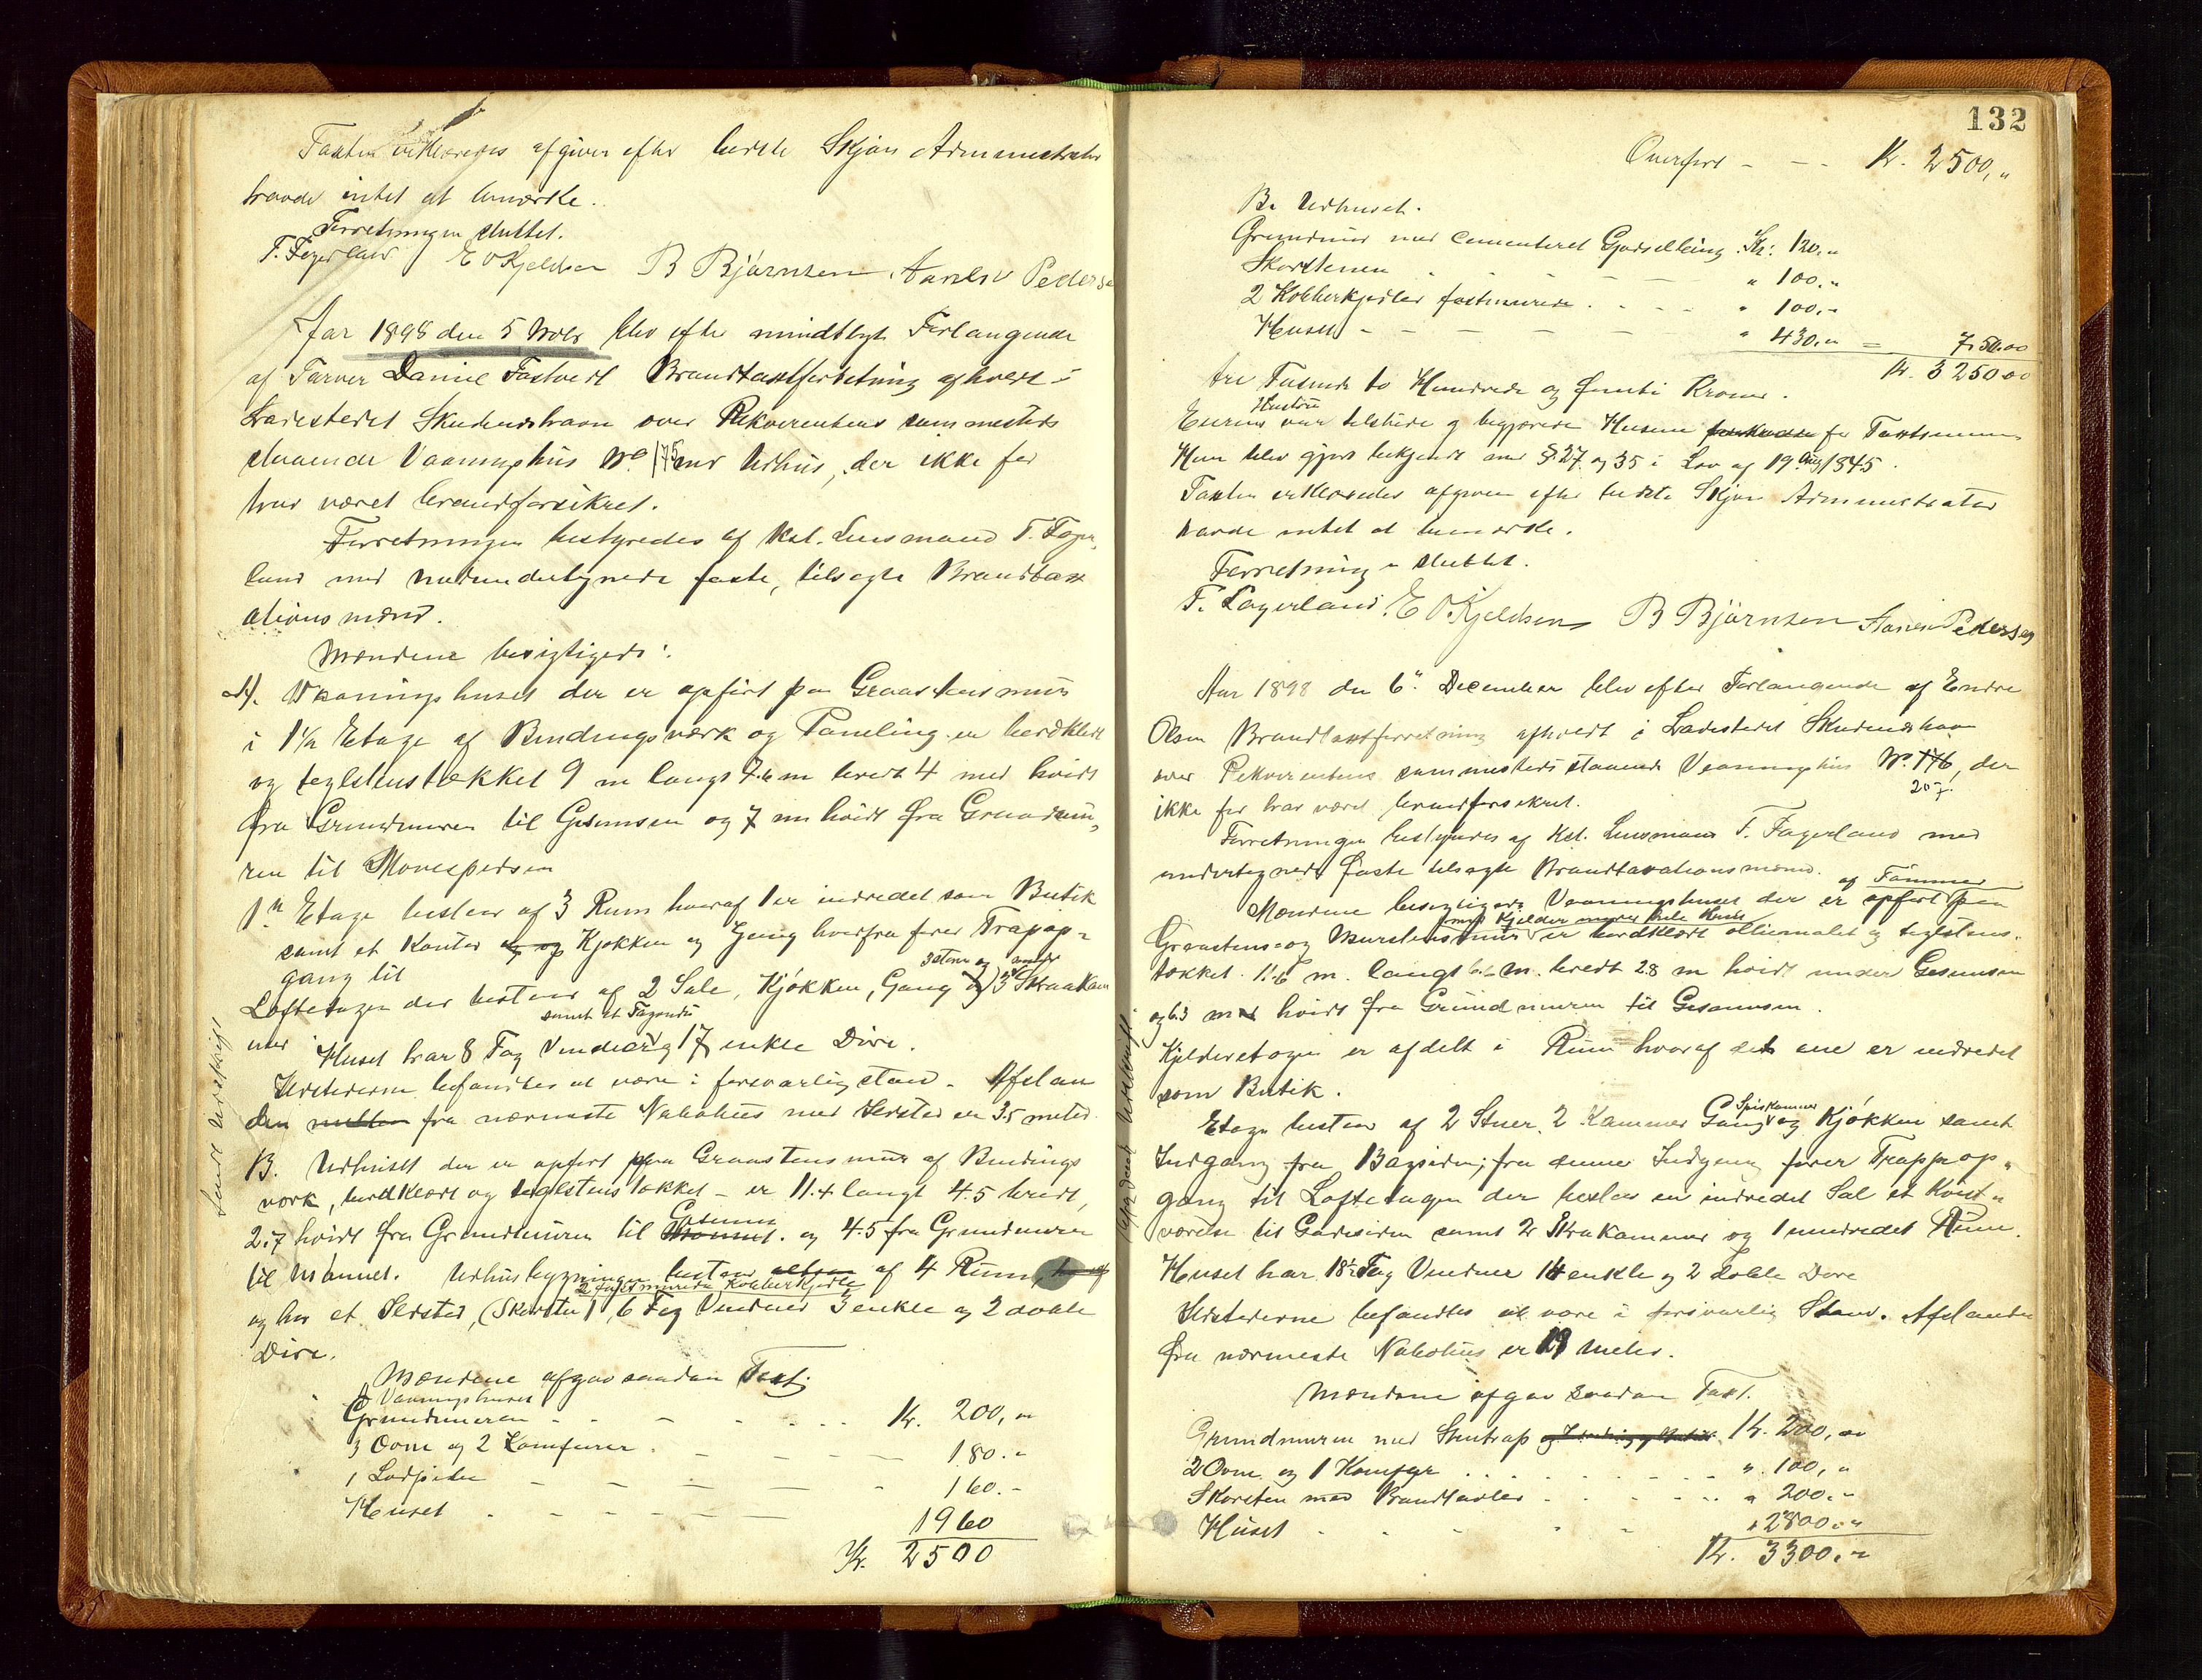 Taxten erklæredes afgiven efter bedste Skjøn Administrator
havde intet at bemærke.
Forretningen sluttet.
T. Fagerland E O Kjeldsen B Bjørnsen Hans Pedersen
Aar 1898 den 5 Novbr blev efter mindtligt Forlangende
af Farver Daniel Fastvedt Brandtaxtforretning afholdt i
Ladestedet Skudeneshavn over Rekvirentens sammesteds
staaende Vaaningshus No 175 med Udhus, der ikke før
har været brandforsikret.
Forretningen bestyredes af Kst. Lensmand T. Fager-
land med medundertegnede faste, tilsagte Brandtax
ationsmænd.
Mændene besigtigede:
A). Vaaningshuset der er opført paa Graastensmur
i 1½ Etage af Bindingsværk og Paneling er bordklædt
og teglstenstækket 9 m langt 7.6 m bredt 4 med høidt
fra Grundmuren til Gesimsen og 7 m høidt fra Grundmu-
ren til Mønespidsen
1ste Etage bestaar af 3 Rum hvoraf 1 er indredet som Butik
samt et Kontor og Kjøkken og Gang hvorfra fører Trapop-
gang til
Loftetagen der bestaar af 2 Sale, Kjøkken, Gang og 3 Skraakam
mer
samt et Tagvindu
Huset har 8 Fag Vinduer og 17 enkle Døre.
Ildstederne befandtes at være i forsvarlig stand. Afstan
den mellem fra nærmeste Nabohus med Ildsted er 3.5 meter.
B. Udhuset der er opført paa Graastensmur af Bindings
værk, bordklædt og teglstenstækket – er 11.4 langt 4.5 bredt,
2.7 høidt fra Grundmuren til Gesims og 4.5 fra Grundmuren
til Mønnet. Udhusbygningen bestaar af 4 Rum
2 fastmurede Kobberkjedler
og har et Ildsted, (Skorsten) 6 Fag Vinduer 3 enkle og 2 doble
Døre.
Mændene afgav saadan Taxt:
A Vaaningshuset
Grundmuren - - - Kr. 200,"
3 Ovne og 2 Komfurer - - - 180.-
1 Ladpibe - - - 160.-
Huset - - - 1960
Kr. 2500
132
Overført - - - Kr. 2500,"
B. Udhuset.
Grundmur med cementeret Gaardsdækning Kr: 120,"
Skorstenen " 100,"
2 Kobberkjedler fastmurede " 100,-
Huset - - - " 430," = 750.00
Kr. 3250 00
tre Tusinde to Hundrede og femti Kroner.
Hustru
Eierens var tilstede og begjærede Husene for Taxtsummen
Hun blev gjort bekjendt med §27 og 35 i Lov af 19 Aug 1845.
Taxten erklæredes afgiven efter bedste Skjøn Administrator
havde intet at bemærke.
Forretningen sluttet.
T. Fagerland. E O. Kjeldsen B Bjørnsen Hans Pedersen
Aar 1898 den 6" December blev efter Forlangende af Endre
Olsen Brandtaxtforretning afholdt i Ladestedet Skudeneshavn
over Rekvirentens sammesteds staaende Vaaningshus No. 176, der
207.
ikke før har været brandforsikret.
Forretningen bestyredes af Kst. Lensmand T. Fagerland med
undertegnede faste tilsagte Brandtaxationsmænd.
af Tømmer
Mændene besigtigede Vaaningshuset der er opført paa
med Kjelder under hele Huset
Graastens- og Murstensmur er bordklædt oliemalet og teglstens-
tækket. 11.6 m. langt 6.6 m. bredt 2.8 m høidt under Gesimsen
og 6.3 m høidt fra Grundmuren til Gesimsen.
Kjelderetagen er afdelt i Rum hvoraf det ene er indredet
som Butik.
Spiskammer
Etagen bestaar af 2 Stuer, 2 Kammer Gang og Kjøkken samt
Indgang fra Bagsiden; fra denne Indgang fører Trappop-
gang til Loftetagen der bestaar en indredet Sal et Kvist-
værelse til Gadesiden samt 2 Skrakammer og 1 uindredet Rum.
Huset har 18½ Fag Vinduer 14 enkle og 2 doble Døre
Ildstederne befandtes at være i forsvarlig Stand. Afstanden
fra nærmeste Nabohus er 19 meter.
Mændene afgav saadan Taxt.
Grundmuren med Stentrap Kr. 200,"
2 Ovne og 1 Komfyr - - - " 100,"
Skorsten med Brandtavler - - - " 200,-
Huset - - - " 2800,"
Kr. 3300,-